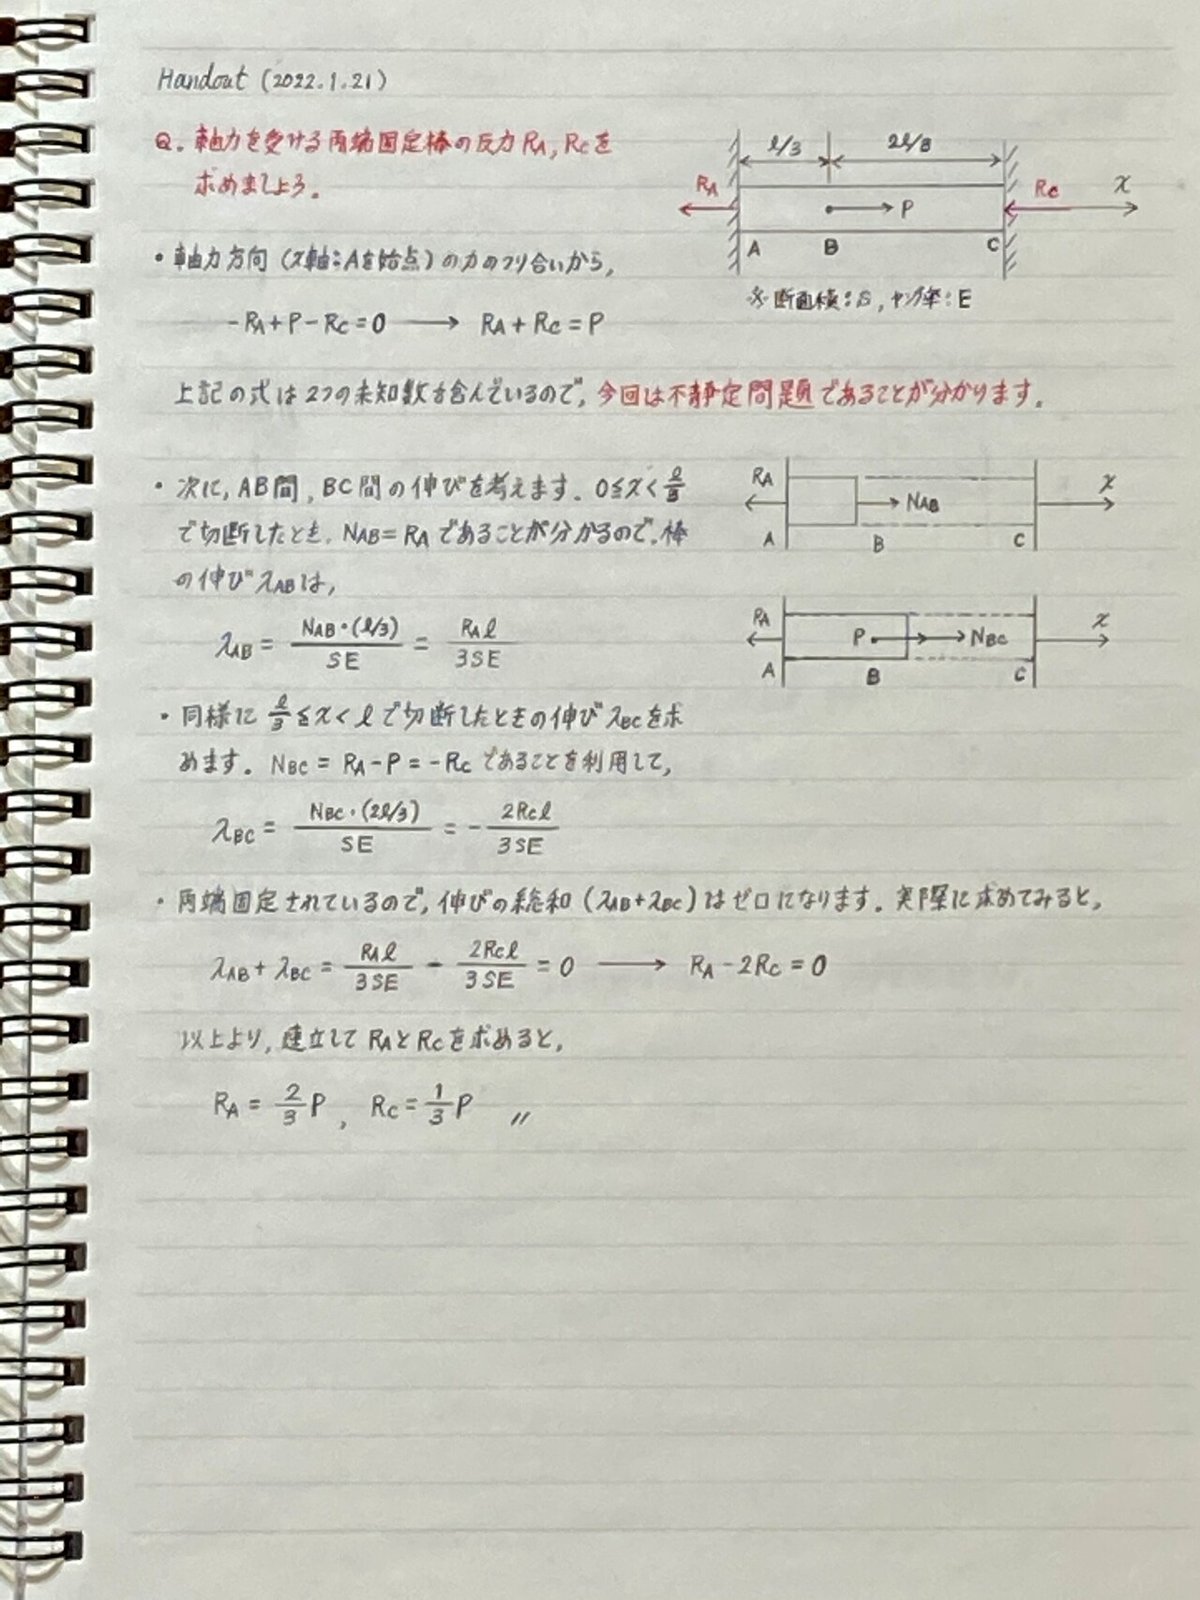 Handout (2022.1.21)
Q. 軸力を受ける両端固定棒の反力 RA, RC を
求めましょう。
l/3 2l/3
RA RC x
P
A B C
※ 断面積:S, ヤング率:E
・軸力方向 (x軸:Aを始点) の力のつり合いから,
-RA+P-RC=0 → RA+RC=P
上記の式は2つの未知数を含んでいるので, 今回は不静定問題であることが分かります。
・次に, AB間, BC間の伸びを考えます. 0≦x<l/3
で切断したとき, NAB=RA であることが分かるので, 棒
の伸び λABは,
RA NAB x
A B C
λAB = NAB・(l/3)/SE = RAl/3SE
RA P NBC x
A B C
・同様に l/3≦x<l で切断したときの伸び λBCを求
めます. NBC = RA-P = -RC であることを利用して,
λBC = NBC・(2l/3)/SE = - 2RCl/3SE
・両端固定されているので, 伸びの総和 (λAB+λBC) はゼロになります. 実際に求めてみると,
λAB + λBC = RAl/3SE - 2RCl/3SE = 0 → RA-2RC=0
以上より, 連立して RAとRCを求めると,
RA = 2/3 P , RC = 1/3 P 〃